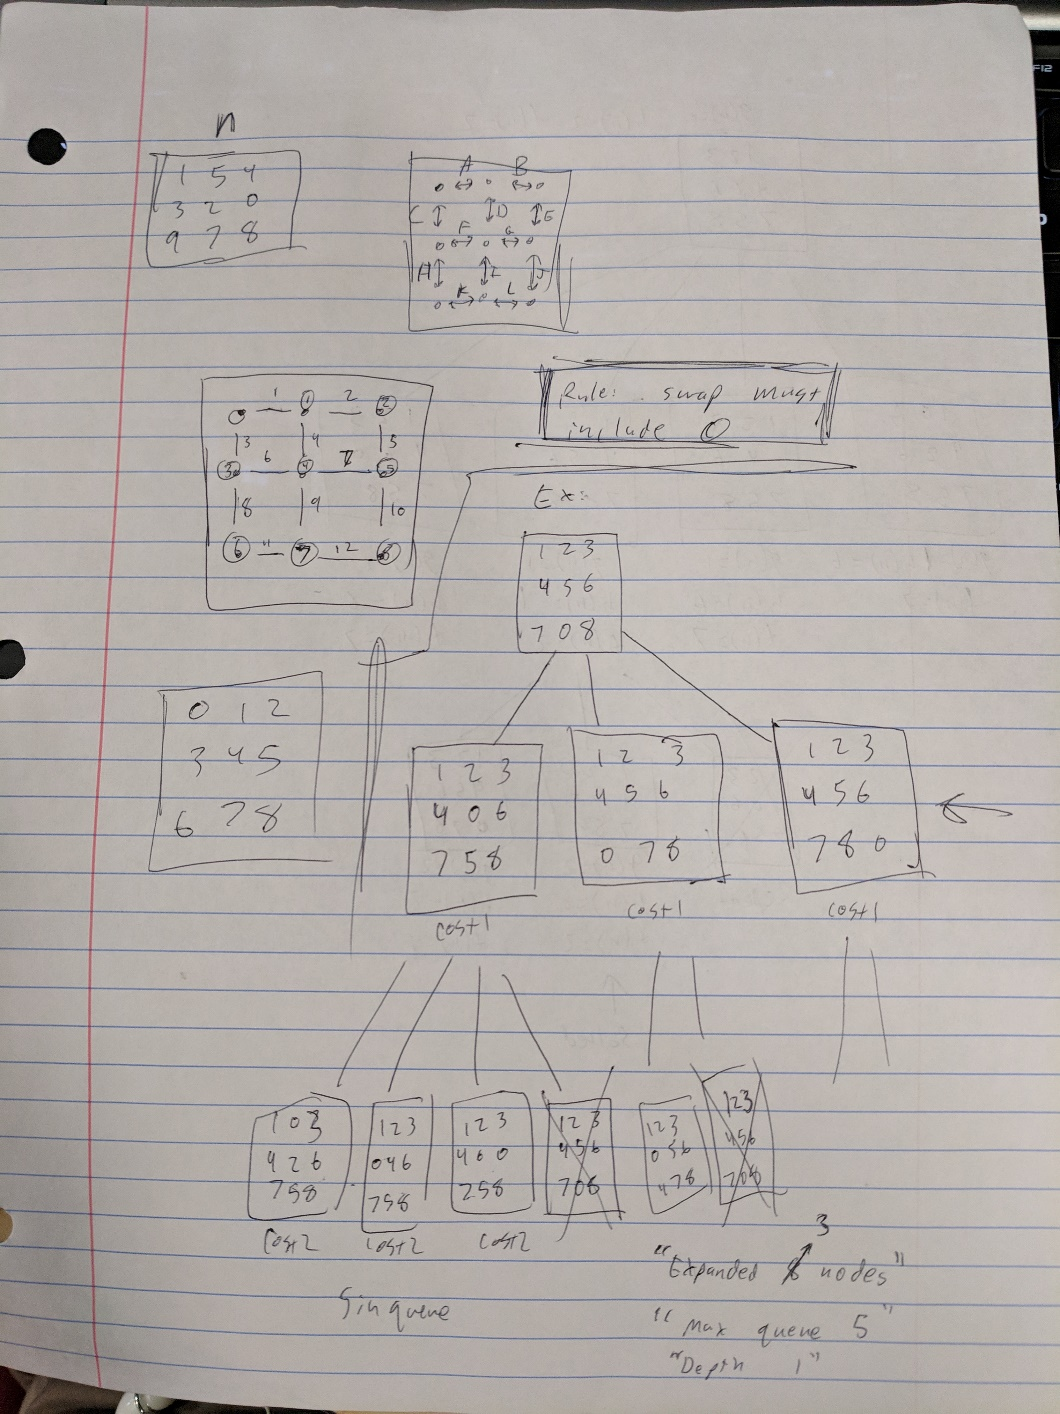 n
1 5 4
3 2 0
9 7 8
A B
C D E
F G
H I J
K L
1 2
1 2
3 4 5
3 6 4 7 5
8 9 10
6 11 7 12 8
Rule: swap must
include 0
Ex:
1 2 3
4 5 6
7 0 8
0 1 2
3 4 5
6 7 8
1 2 3
4 0 6
7 5 8
cost 1
1 2 3
4 5 6
0 7 8
cost 1
1 2 3
4 5 6
7 8 0
cost 1
1 0 3
4 2 6
7 5 8
cost 2
1 2 3
0 4 6
7 5 8
cost 2
1 2 3
4 6 0
2 5 8
cost 2
1 2 3
4 5 6
7 0 8
1 2 3
0 5 6
4 7 8
1 2 3
4 5 6
7 0 8
5 in queue
3
"Expanded nodes"
"Max queue 5"
"Depth 1"